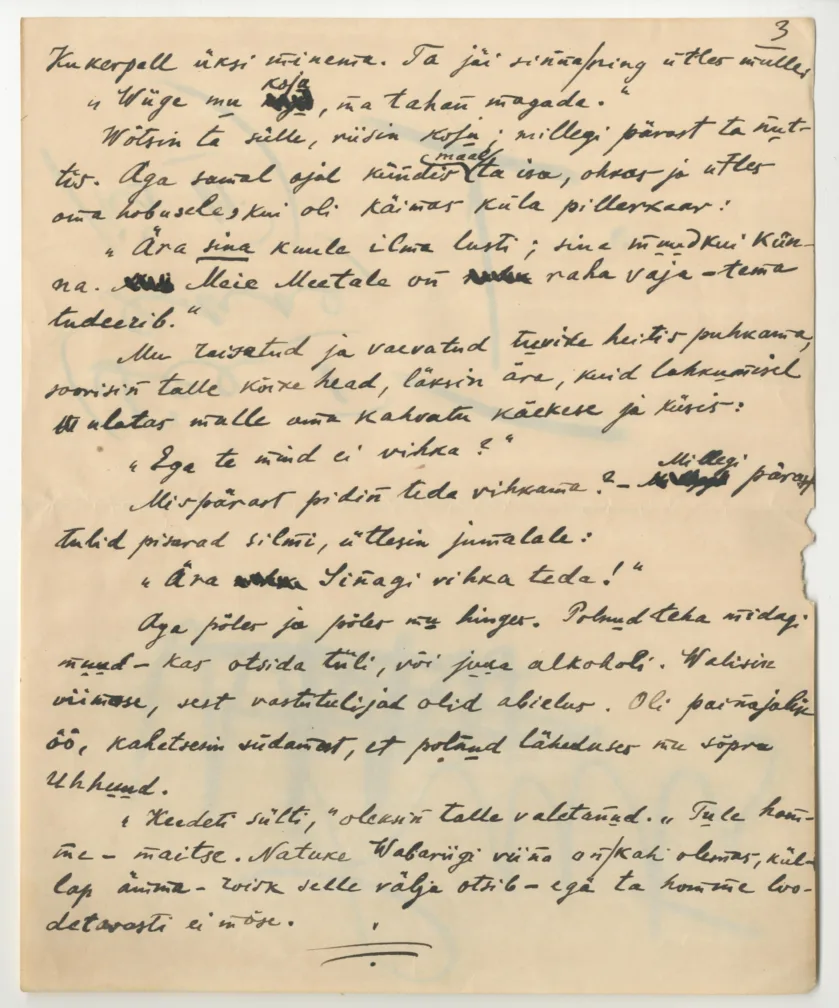 3
Kukerpall üksi minema. Ta jäi sinna/ring ütles mulle,
„Wiige mu koja, ma tahan magada."
Wõtsin ta sülle, viisin koju; millegi pärast ta nut-
tis. Aga samal ajal kündis maad ta isa, ohkas ja ütles
oma hobusele, kui oli käimas küla pillerkaar:
„Ära sina kuule ilma lusti; sina muudkui kün-
na. Meie Meetale on raha vaja – tema
tudeerib."
Mu raisatud ja vaevatud tuvike heitis puhkama,
soovisin talle kõike head, läksin ära, kuid lahkumisel
ulatas mulle oma kahvatu käekese ja küsis:
„Ega te mind ei vihka?"
Mispärast pidin teda vihkama? – Millegi pärast
tulid pisarad silmi, ütlesin jumalale:
„Ära Sinagi vihka teda!"
Aga põles ja põles mu hinges. Polnud teha midagi
muud – kas otsida tüli, või juua alkoholi. Walisin
viimase, sest vastutulijad olid abielus. Oli painajalik
öö, kahetsesin südamest, et polnud läheduses mu sõpra
Uhhuud.
„Keedeti sülti," oleksin talle valetanud. „Tule hom-
me – maitse. Natuke Wabariigi viina on/kah olemas, kül-
lap ämma-roisk selle välja otsib – ega ta homme loo-
detavasti ei möse.